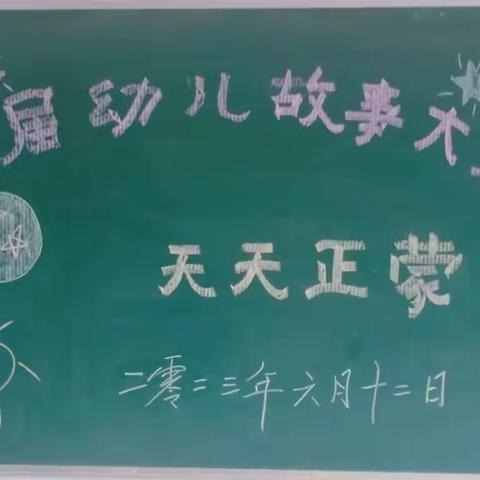 届幼儿故事大
天天正蒙
二零二三年六月十二日